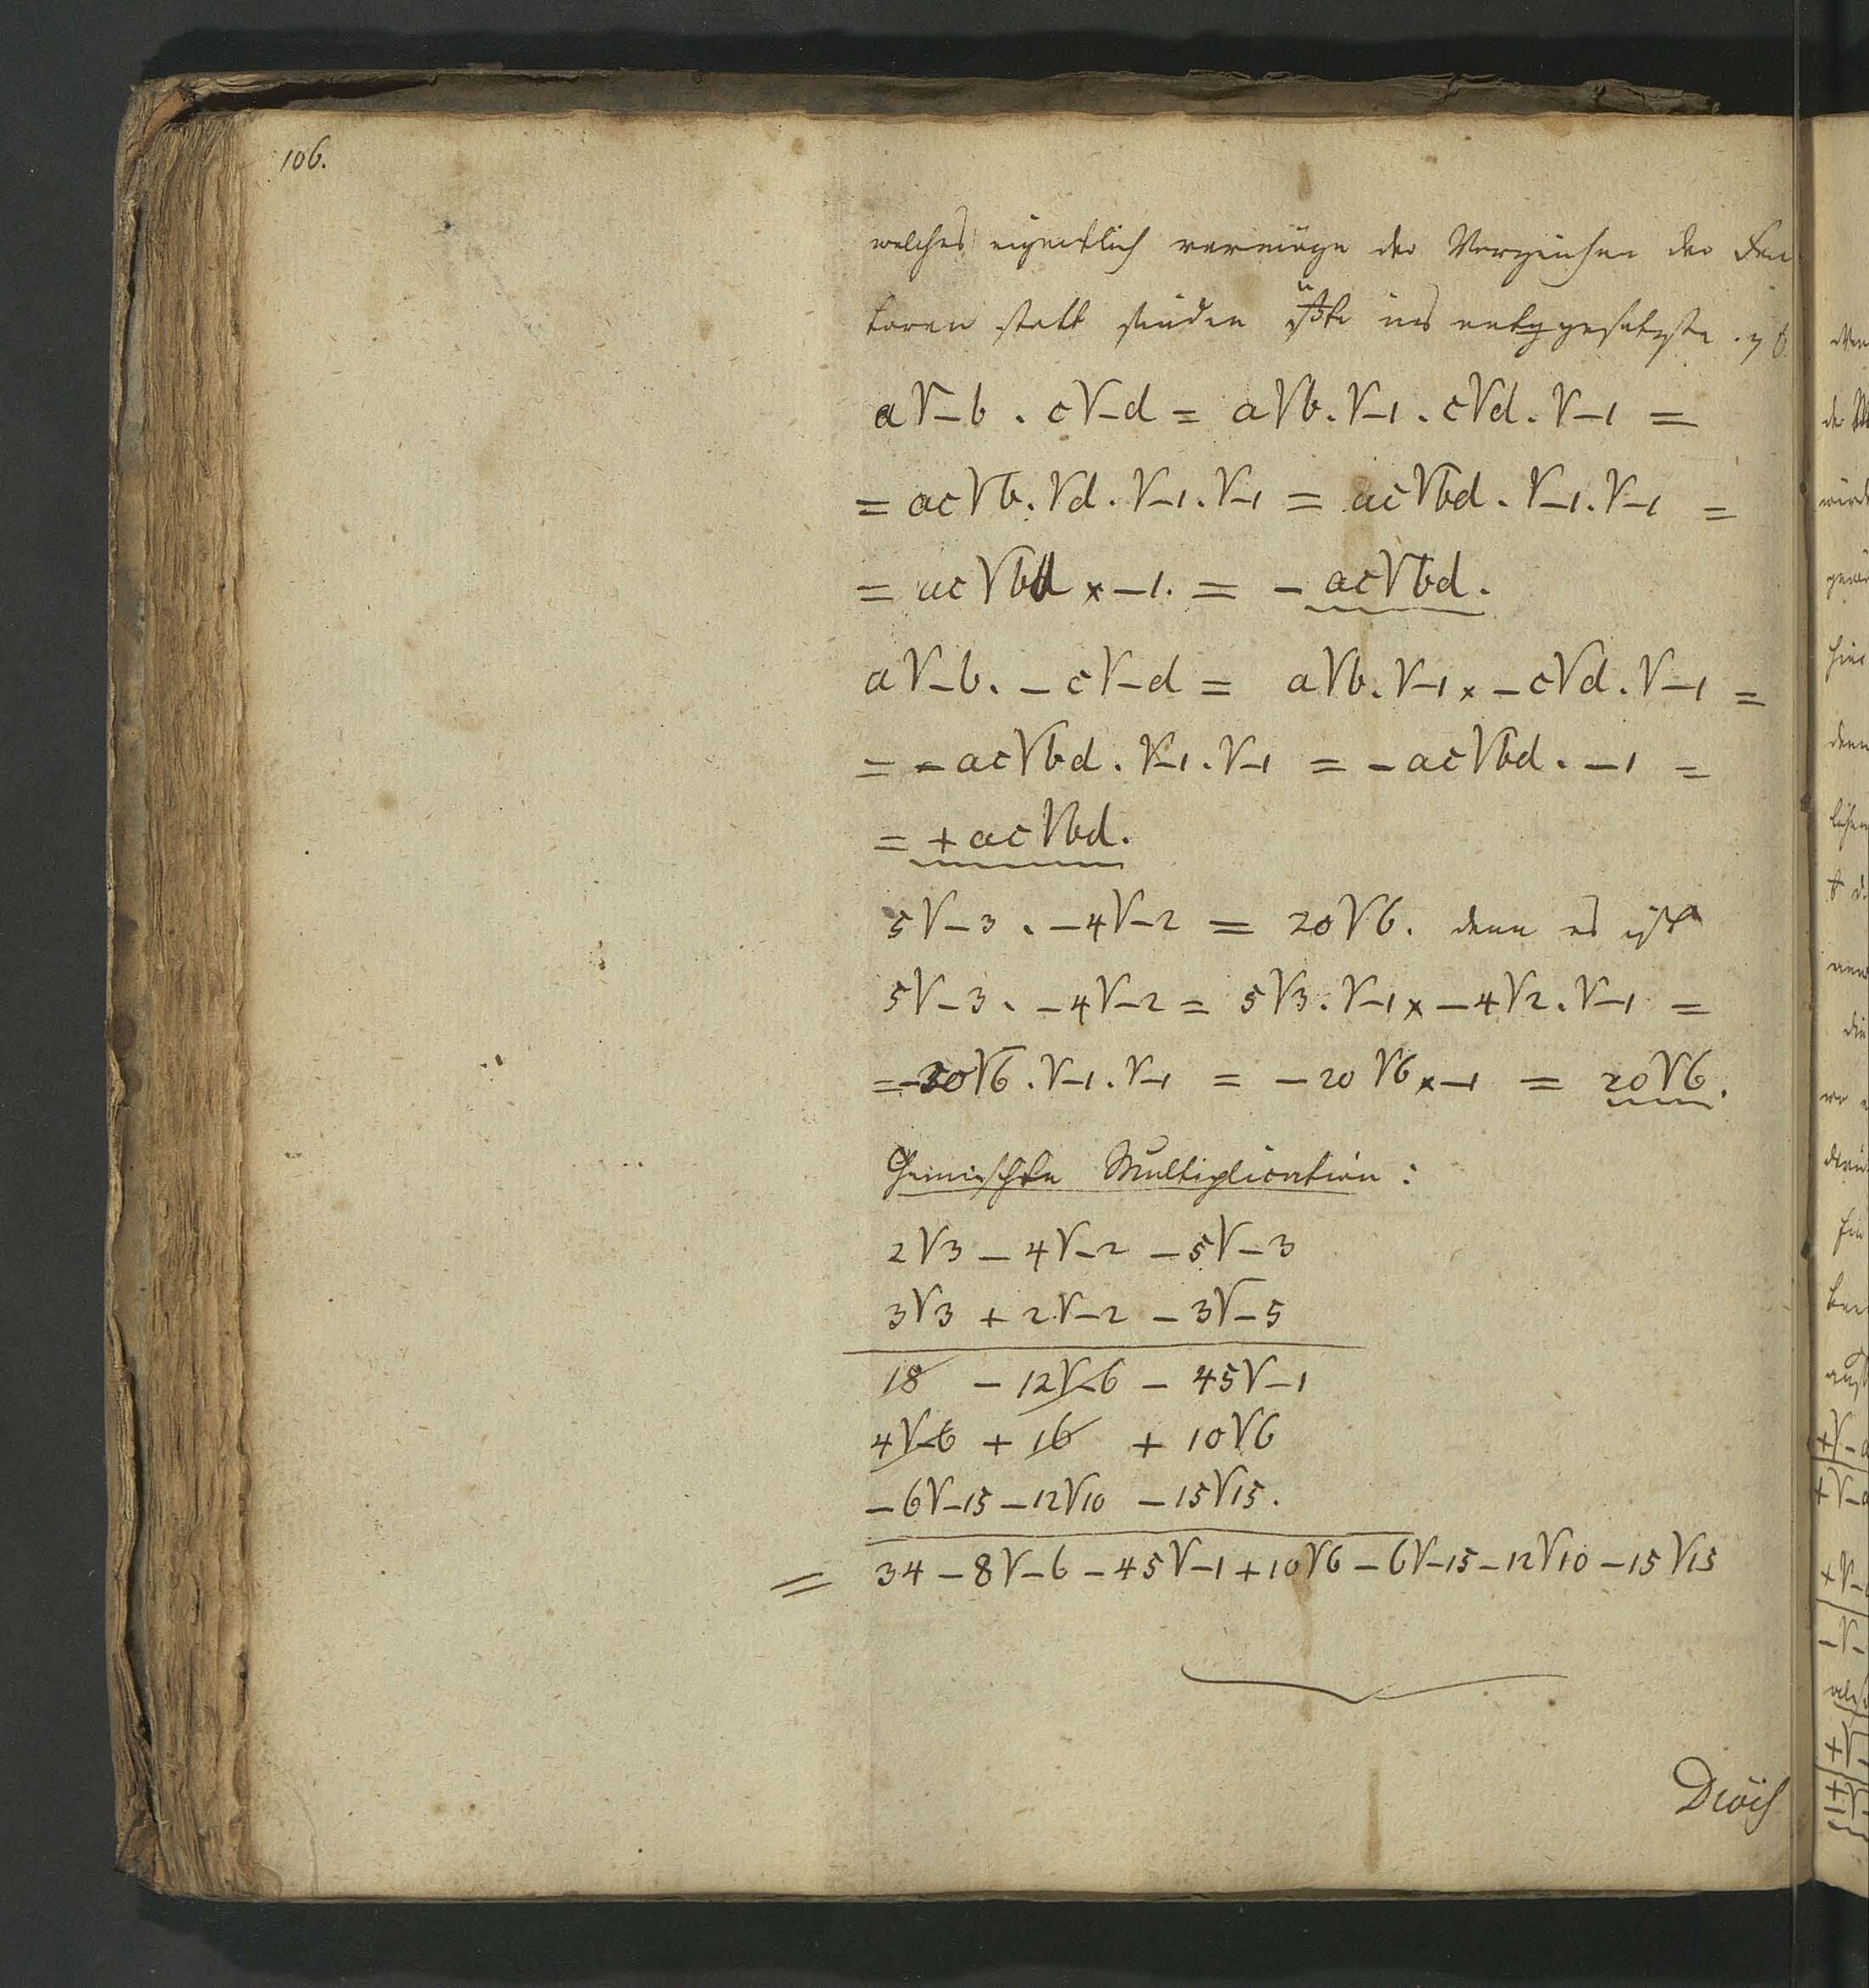 106.
welches eigentlich vermöge der Vorzeichen der Fac
toren statt finden müßte ins entggesetzte. z B.
a√-b . c√-d = a√b.√-1 . c√d.√-1 =
= ac√b.√d.√-1.√-1 = ac√bd.√-1.√-1 =
= ac√bd × -1. = - ac√bd.
a√-b. - c√-d = a√b.√-1 × -c√d.√-1 =
= - ac√bd.√-1.√-1 = - ac√bd. -1 =
= + ac√bd.
5√-3 . -4√-2 = 20√6. denn es ist
5√-3. -4√-2 = 5√3.√-1 × -4√2.√-1 =
= -20√6.√-1.√-1 = -20√6 × -1 = 20√6.
Gemischte Multiplication:
2√3 - 4√-2 - 5√-3
3√3 + 2√-2 - 3√-5
18 - 12√-6 - 45√-1
4√-6 + 16 + 10√6
-6√-15 - 12√10 - 15√15.
= 34 - 8√-6 - 45√-1 + 10√6 - 6√-15 - 12√10 - 15√15